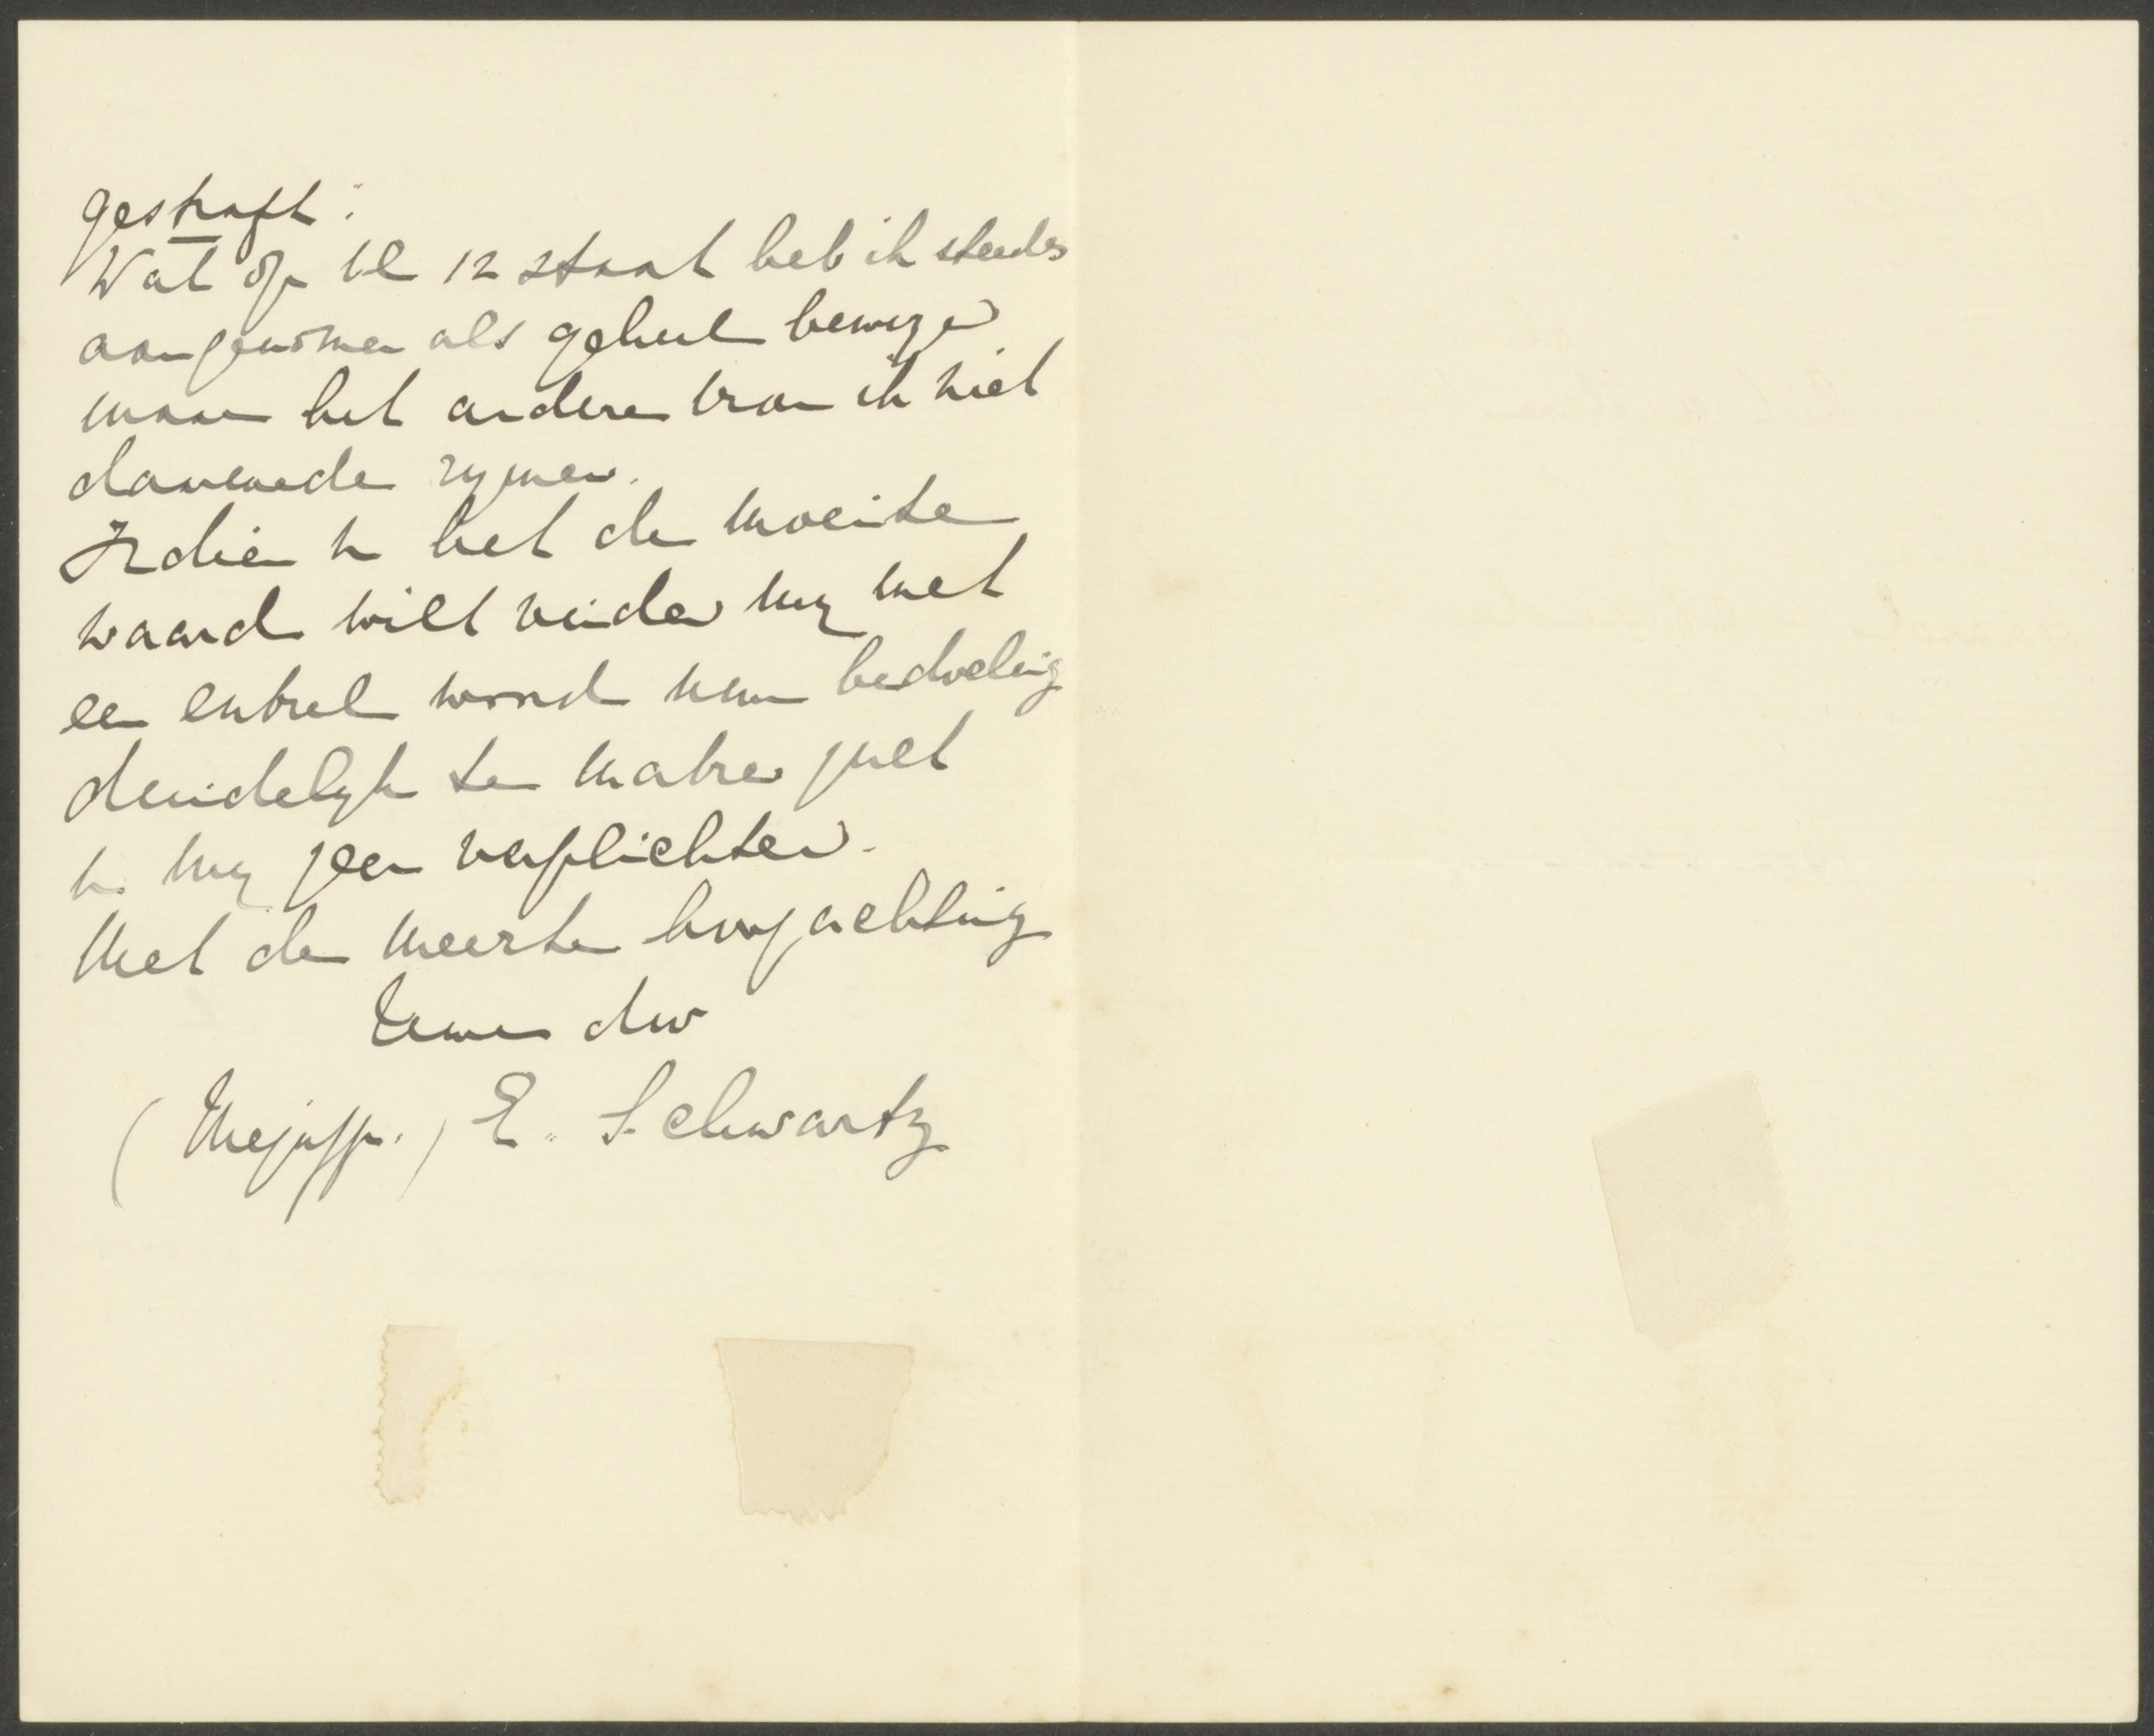 gestraft:"
Wat op bl 12 staat heb ik steeds
aangenomen als geheel bewezen
maar het andere kan ik niet
daarmede rymen.
Indien u het de moeite
waard wilt vinden my met
een enkel woord uw bedoeling
duidelyk te maken zult
u my zeer verplichten.
Met de meeste hoogachting
Uwe dw
(Mejuffr.) E. Schwartz